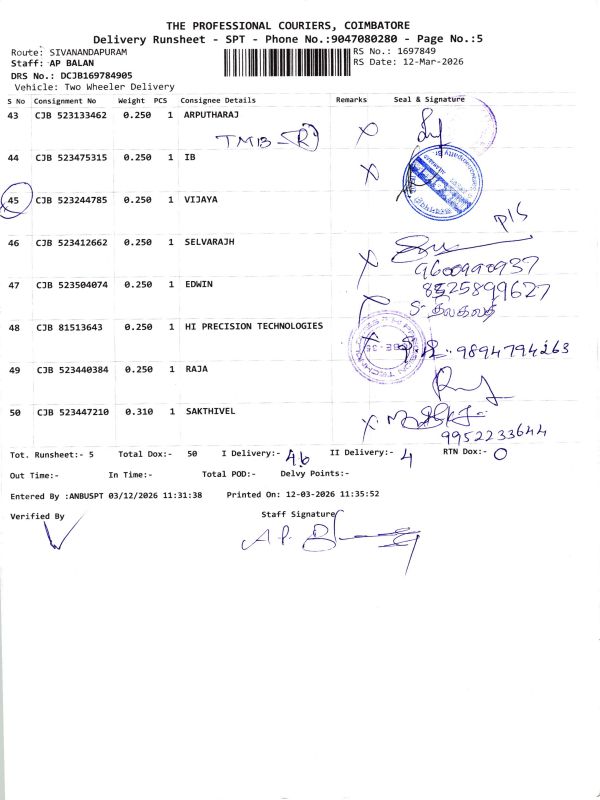 THE PROFESSIONAL COURIERS, COIMBATORE
Delivery Runsheet - SPT - Phone No.:9047080280 - Page No.:5
Route: SIVANANDAPURAM
RS No.: 1697849
Staff: AP BALAN
RS Date: 12-Mar-2026
DRS No.: DCJB169784905
Vehicle: Two Wheeler Delivery
S No Consignment No Weight PCS Consignee Details Remarks Seal & Signature
43 CJB 523133462 0.250 1 ARPUTHARAJ
TMB
X
44 CJB 523475315 0.250 1 IB
X
45 CJB 523244785 0.250 1 VIJAYA
P/S
46 CJB 523412662 0.250 1 SELVARAJH
X
9600990937
47 CJB 523504074 0.250 1 EDWIN
8525899627
X
S. திலகவதி
48 CJB 81513643 0.250 1 HI PRECISION TECHNOLOGIES
X
9894794263
49 CJB 523440384 0.250 1 RAJA
50 CJB 523447210 0.310 1 SAKTHIVEL
X
9952233644
Tot. Runsheet:- 5 Total Dox:- 50 I Delivery:- 46 II Delivery:- 4 RTN Dox:- 0
Out Time:- In Time:- Total POD:- Delvy Points:-
Entered By :ANBUSPT 03/12/2026 11:31:38 Printed On: 12-03-2026 11:35:52
Verified By Staff Signature
A P. B